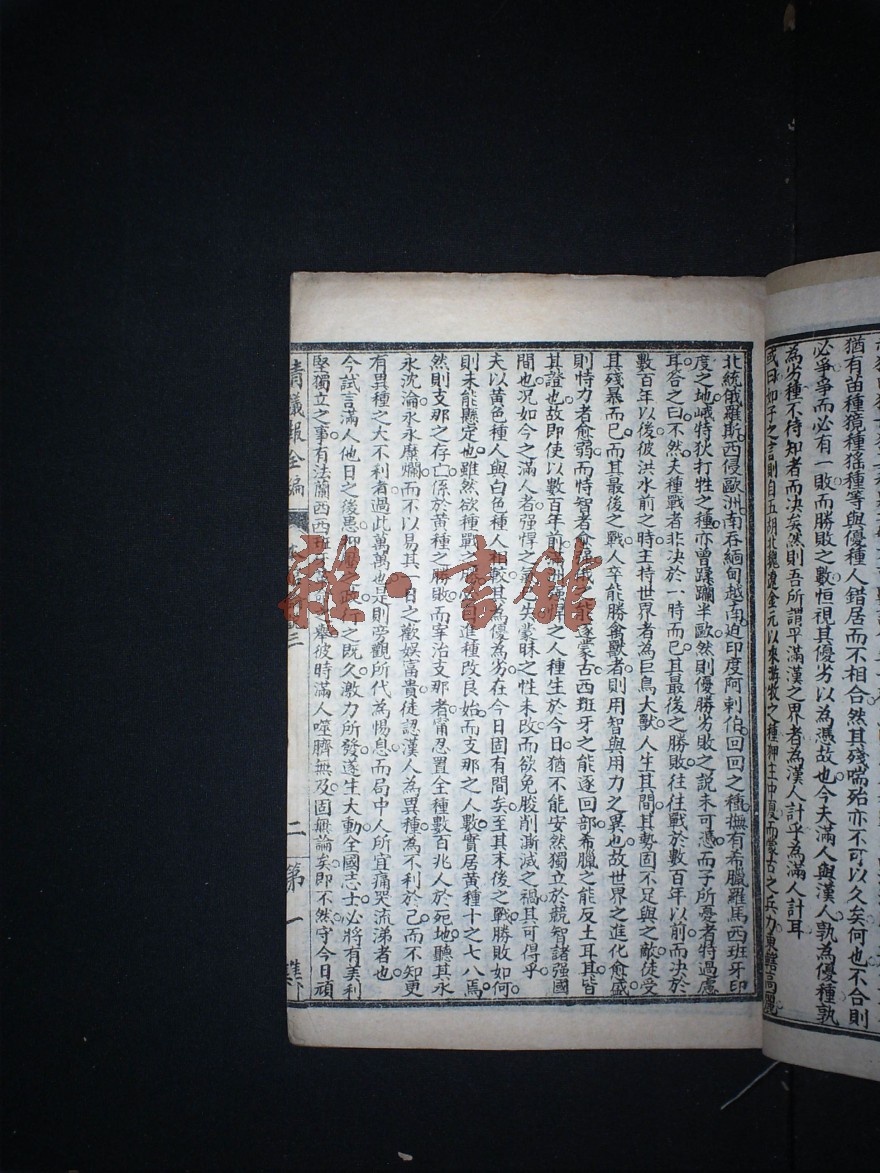 猶有苗種獞種猺種等與優種人錯居而不相合然其殘喘殆亦不可以久矣何也不合則
必爭爭而必有一敗而勝敗之數恒視其優劣以為憑故也今夫滿人與漢人孰為優種孰
為劣種不待知者而決矣然則吾所謂平滿漢之界者為漢人計乎為滿人計耳
或曰如子之言則自五胡北魏遼金元以來游牧之種狎主中夏而蒙古之兵力東轄高麗
北統俄羅斯西侵歐洲南吞緬甸越南迫印度阿剌伯回回之種撫有希臘羅馬西班牙印
度之地峨特狄打牲之種亦曾蹂躪半歐然則優勝劣敗之說未可憑而子所憂者特過慮
耳答之曰不然夫種戰者非決於一時而已其最後之勝敗往往戰於數百年以前而決於
數百年以後彼洪水前之時主持世界者為巨鳥大獸人生其間其勢固不足與之敵徒受
其殘暴而已而其最後之戰人卒能勝禽獸者則用智與用力之異也故世界之進化愈盛
則恃力者愈弱而恃智者愈 能逐蒙古西班牙之能逐回部希臘之能反土耳其皆
其證也故即使以數百年前 之人種生於今日猶不能安然獨立於競智諸強國
間也况如今之滿人者强悍之 失蒙昧之性未改而欲免朘削澌滅之禍其可得乎
夫以黃色種人與白色種人相較其為優為劣在今日固有間矣至其末後之戰勝敗如何
則未能懸定也雖然欲種戰之 自進種改良始而支那之人數實居黃種十之七八焉
然則支那之存亡係於黃種之勝敗而宰治支那者甯忍置全種數百兆人於死地聽其永
永沈淪永永糜爛而不以易其一日之歡娛富貴徒認漢人為異種為不利於己而不知更
有異種之大不利者過此萬萬也是則旁觀所代為惕息而局中人所宜痛哭流涕者也
今試言滿人他日之後患 壓 之既久激力所發遂生大動全國志士必將有美利
堅獨立之事有法蘭西西班牙 舉彼時滿人噬臍無及固無論矣即不然守今日頑
清議報全編 二 第一集
雜·書館